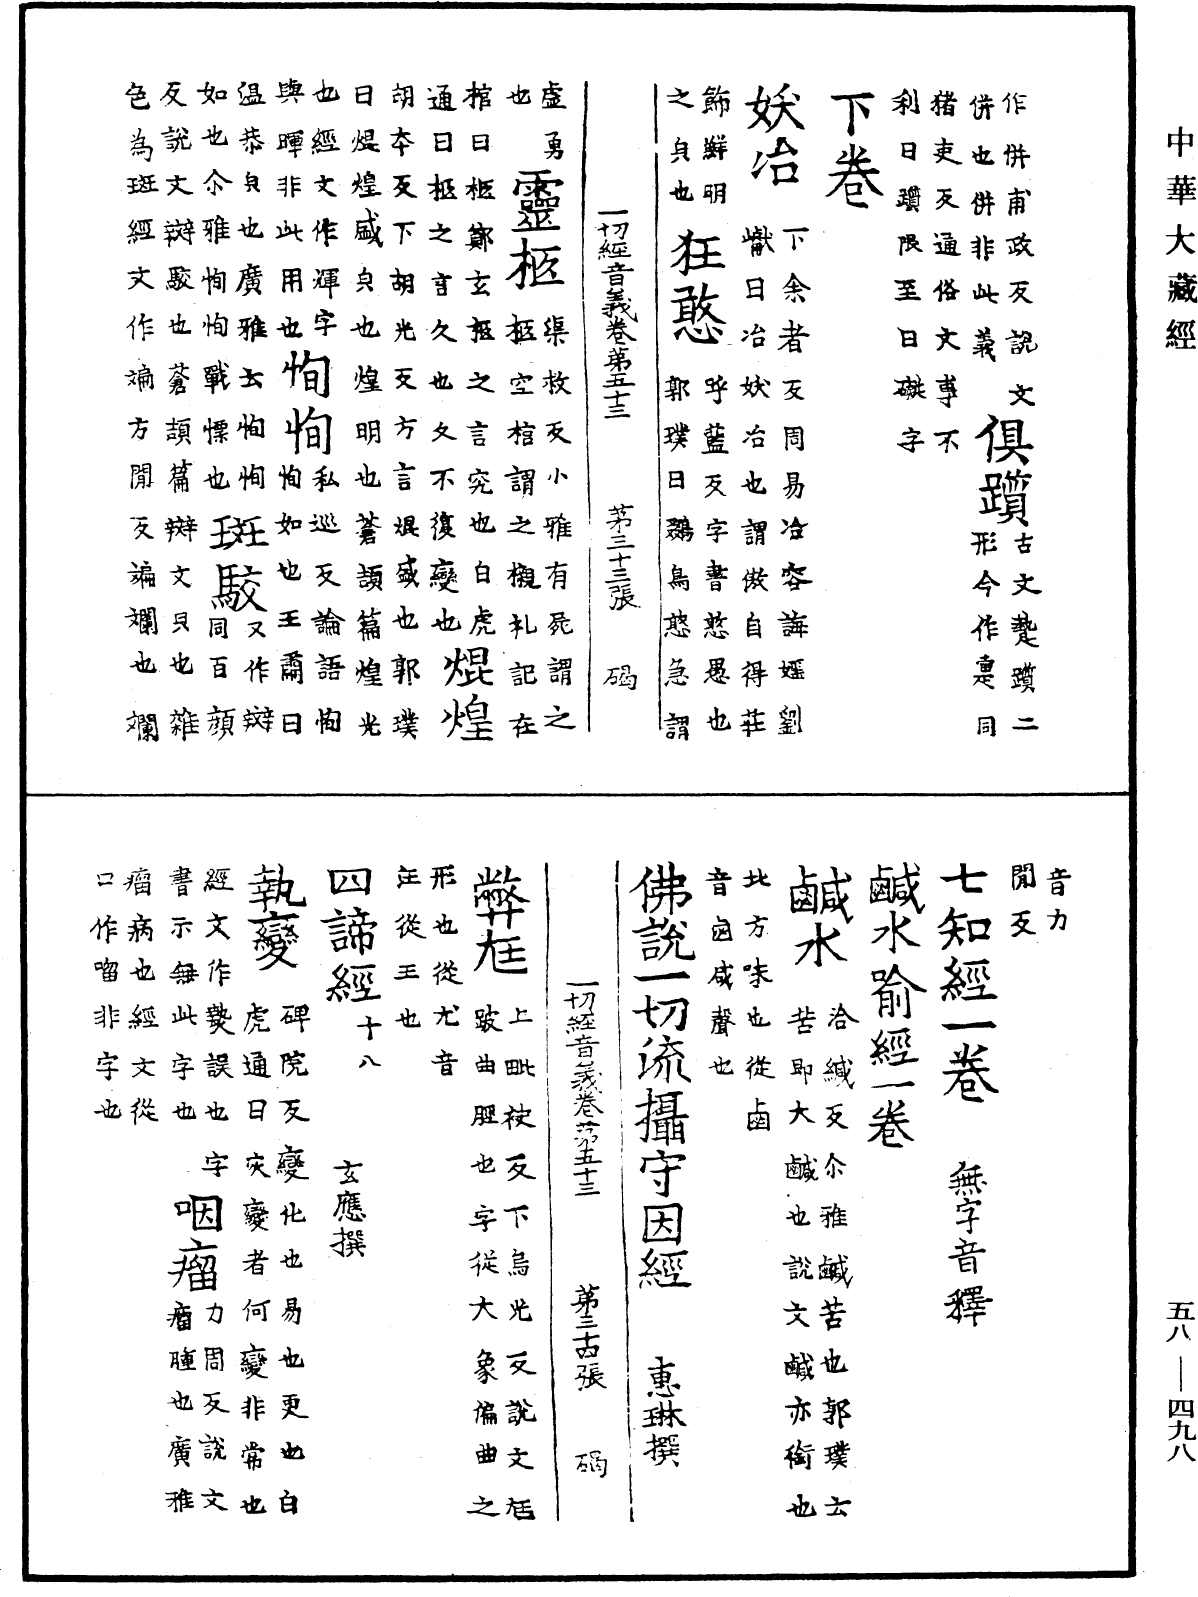 中華大藏經
作併甫政反說文
併也併非此義
俱躓
古文疐躓二
形今作𤴡同
猪吏反通俗文事不
利曰躓限至曰礙字
下卷
妖冶
下余者反周易冶容誨婬劉
瓛曰冶妖冶也謂傲自得莊
飾鮮明
之皃也
狂憨
呼藍反字書憨愚也
郭璞曰鵽鳥憨急謂
一切經音義卷第五十三 第三十三張 碣
虛勇
也
靈柩
渠救反小雅有屍謂之
柩空棺謂之櫬礼記在
棺曰柩鄭玄柩之言究也白虎
通曰柩之言久也久不復變也
焜煌
胡本反下胡光反方言焜盛也郭璞
曰焜煌盛皃也煌明也蒼頡篇煌光
也經文作輝字
與暉非此用也
恂恂
私巡反論語恂
恂如也王肅曰
温恭皃也廣雅云恂恂
如也尒雅恂恂戰慄也
斑駮
又作辬
同百顏
反說文辬駮也蒼頡篇辬文皃也雜
色為斑經文作斒方閒反斒斕也斕
音力
閒反
七知經一卷 無字音釋
鹹水喻經一卷
鹹水
洽緘反尒雅鹹苦也郭璞云
苦即大鹹也說文鹹亦銜也
北方味也從鹵
音鹵咸聲也
佛說一切流攝守因經 惠琳撰
一切經音義卷第五十三 第三十四張 碣
弊尪
上毗袂反下烏光反說文尪
跛曲脛也字從大象偏曲之
形也從尢音
汪從王也
四諦經 十八 玄應撰
執變
碑院反變化也易也更也白
虎通曰灾變者何變非常也
經文作㸑誤也字
書示無此字也
咽瘤
力周反說文
瘤腫也廣雅
瘤病也經文從
口作㗜非字也
五八—四九八